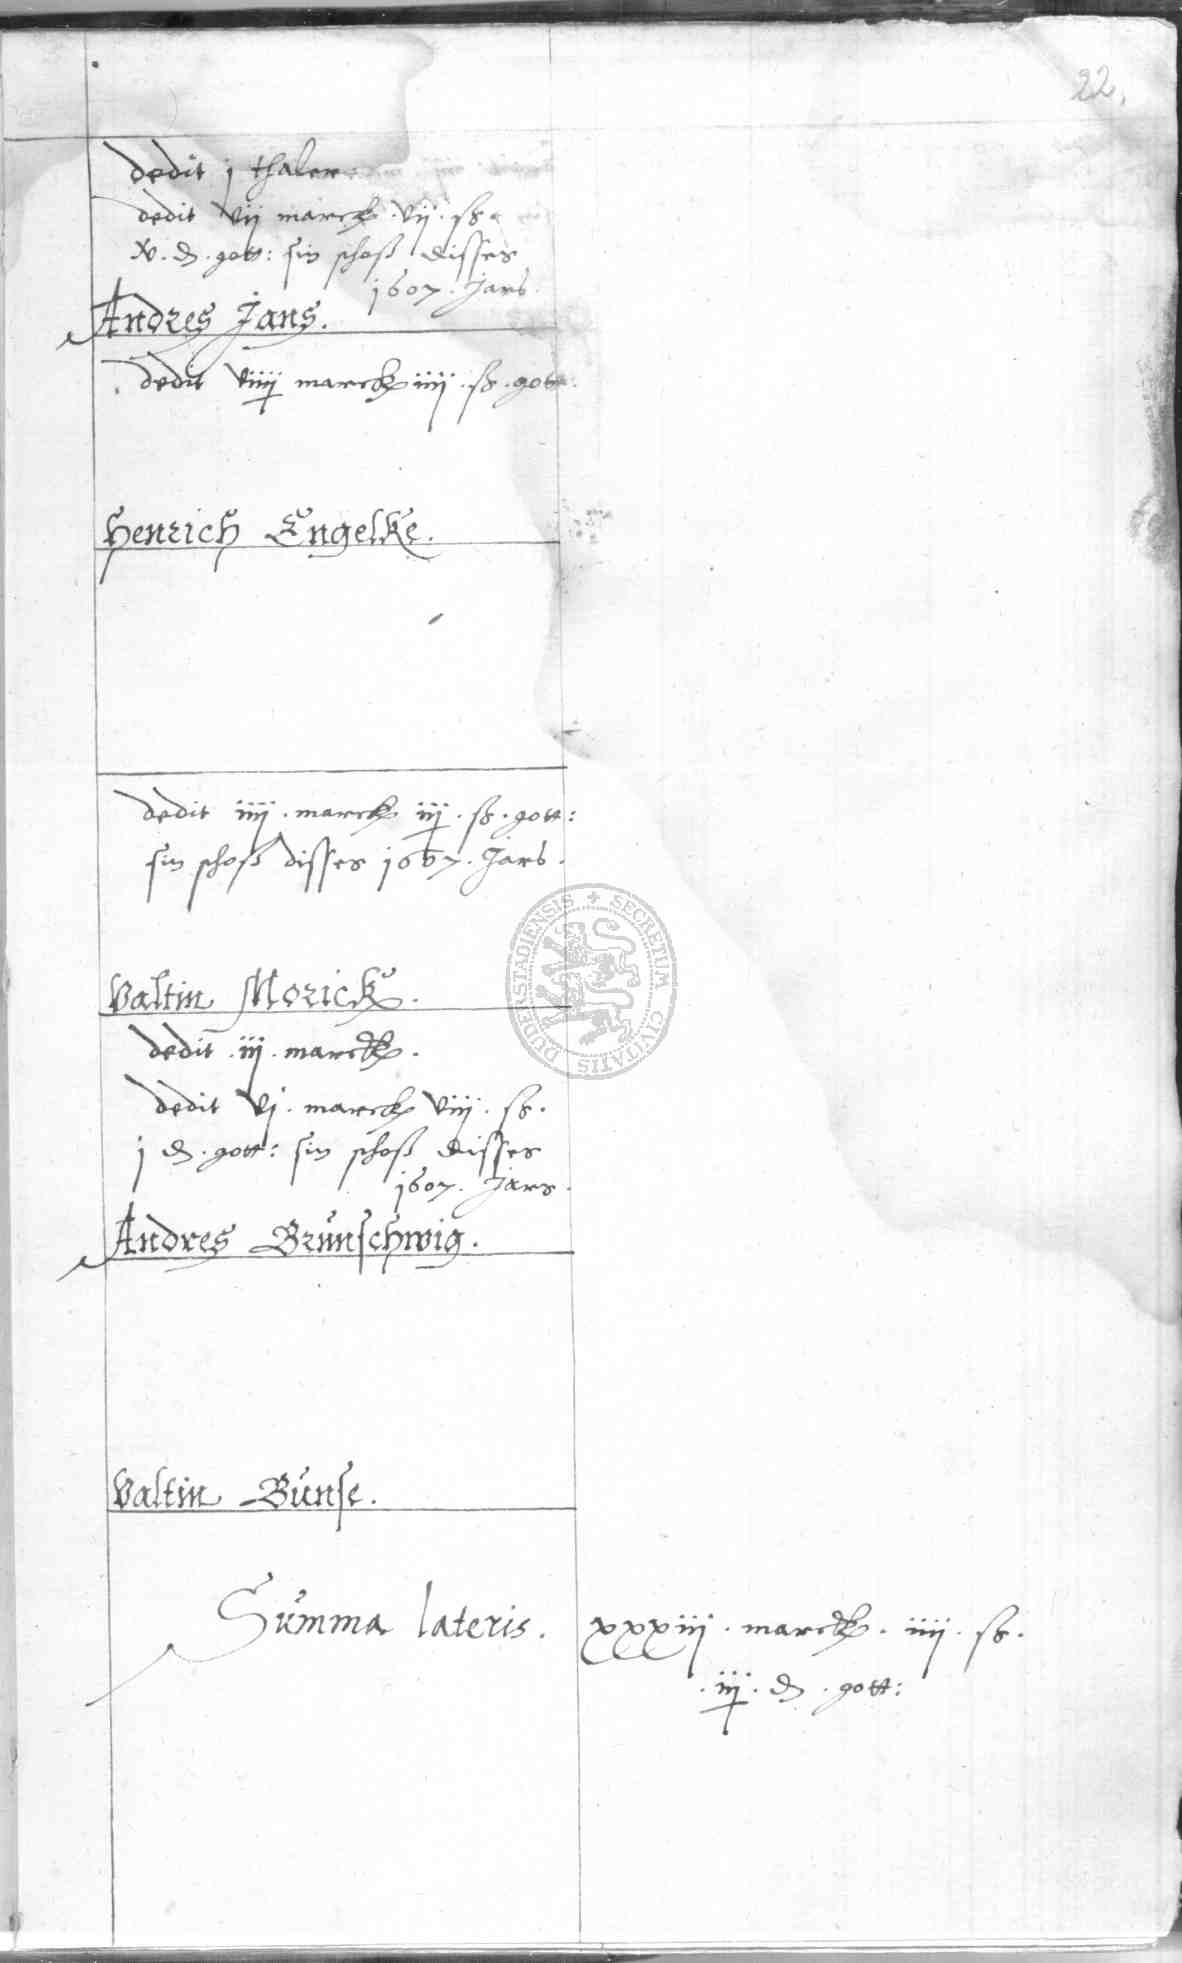 22.
dedit j thaler
dedit vij marck . vij . ß .
x . d . gott : sin schoß disses
1607 . Jars .
Andres Jans .
dedit viiij marck iiij . ß . gott :
Henrich Engelke .
dedit iiij . marck iij . ß . gott :
sin schoß disses 1607 . Jars .
Valtin Morick .
dedit . iij . marck .
dedit vj . marck viij . ß .
j d . gott : sin schoß disses
1607 . Jars .
Andres Brunschwig .
Valtin Bunse .
Summa lateris . xxxiij . marck . iiij . ß .
. iij . d . gott :
SECRETUM CIVITATIS DUDERSTADIENSIS